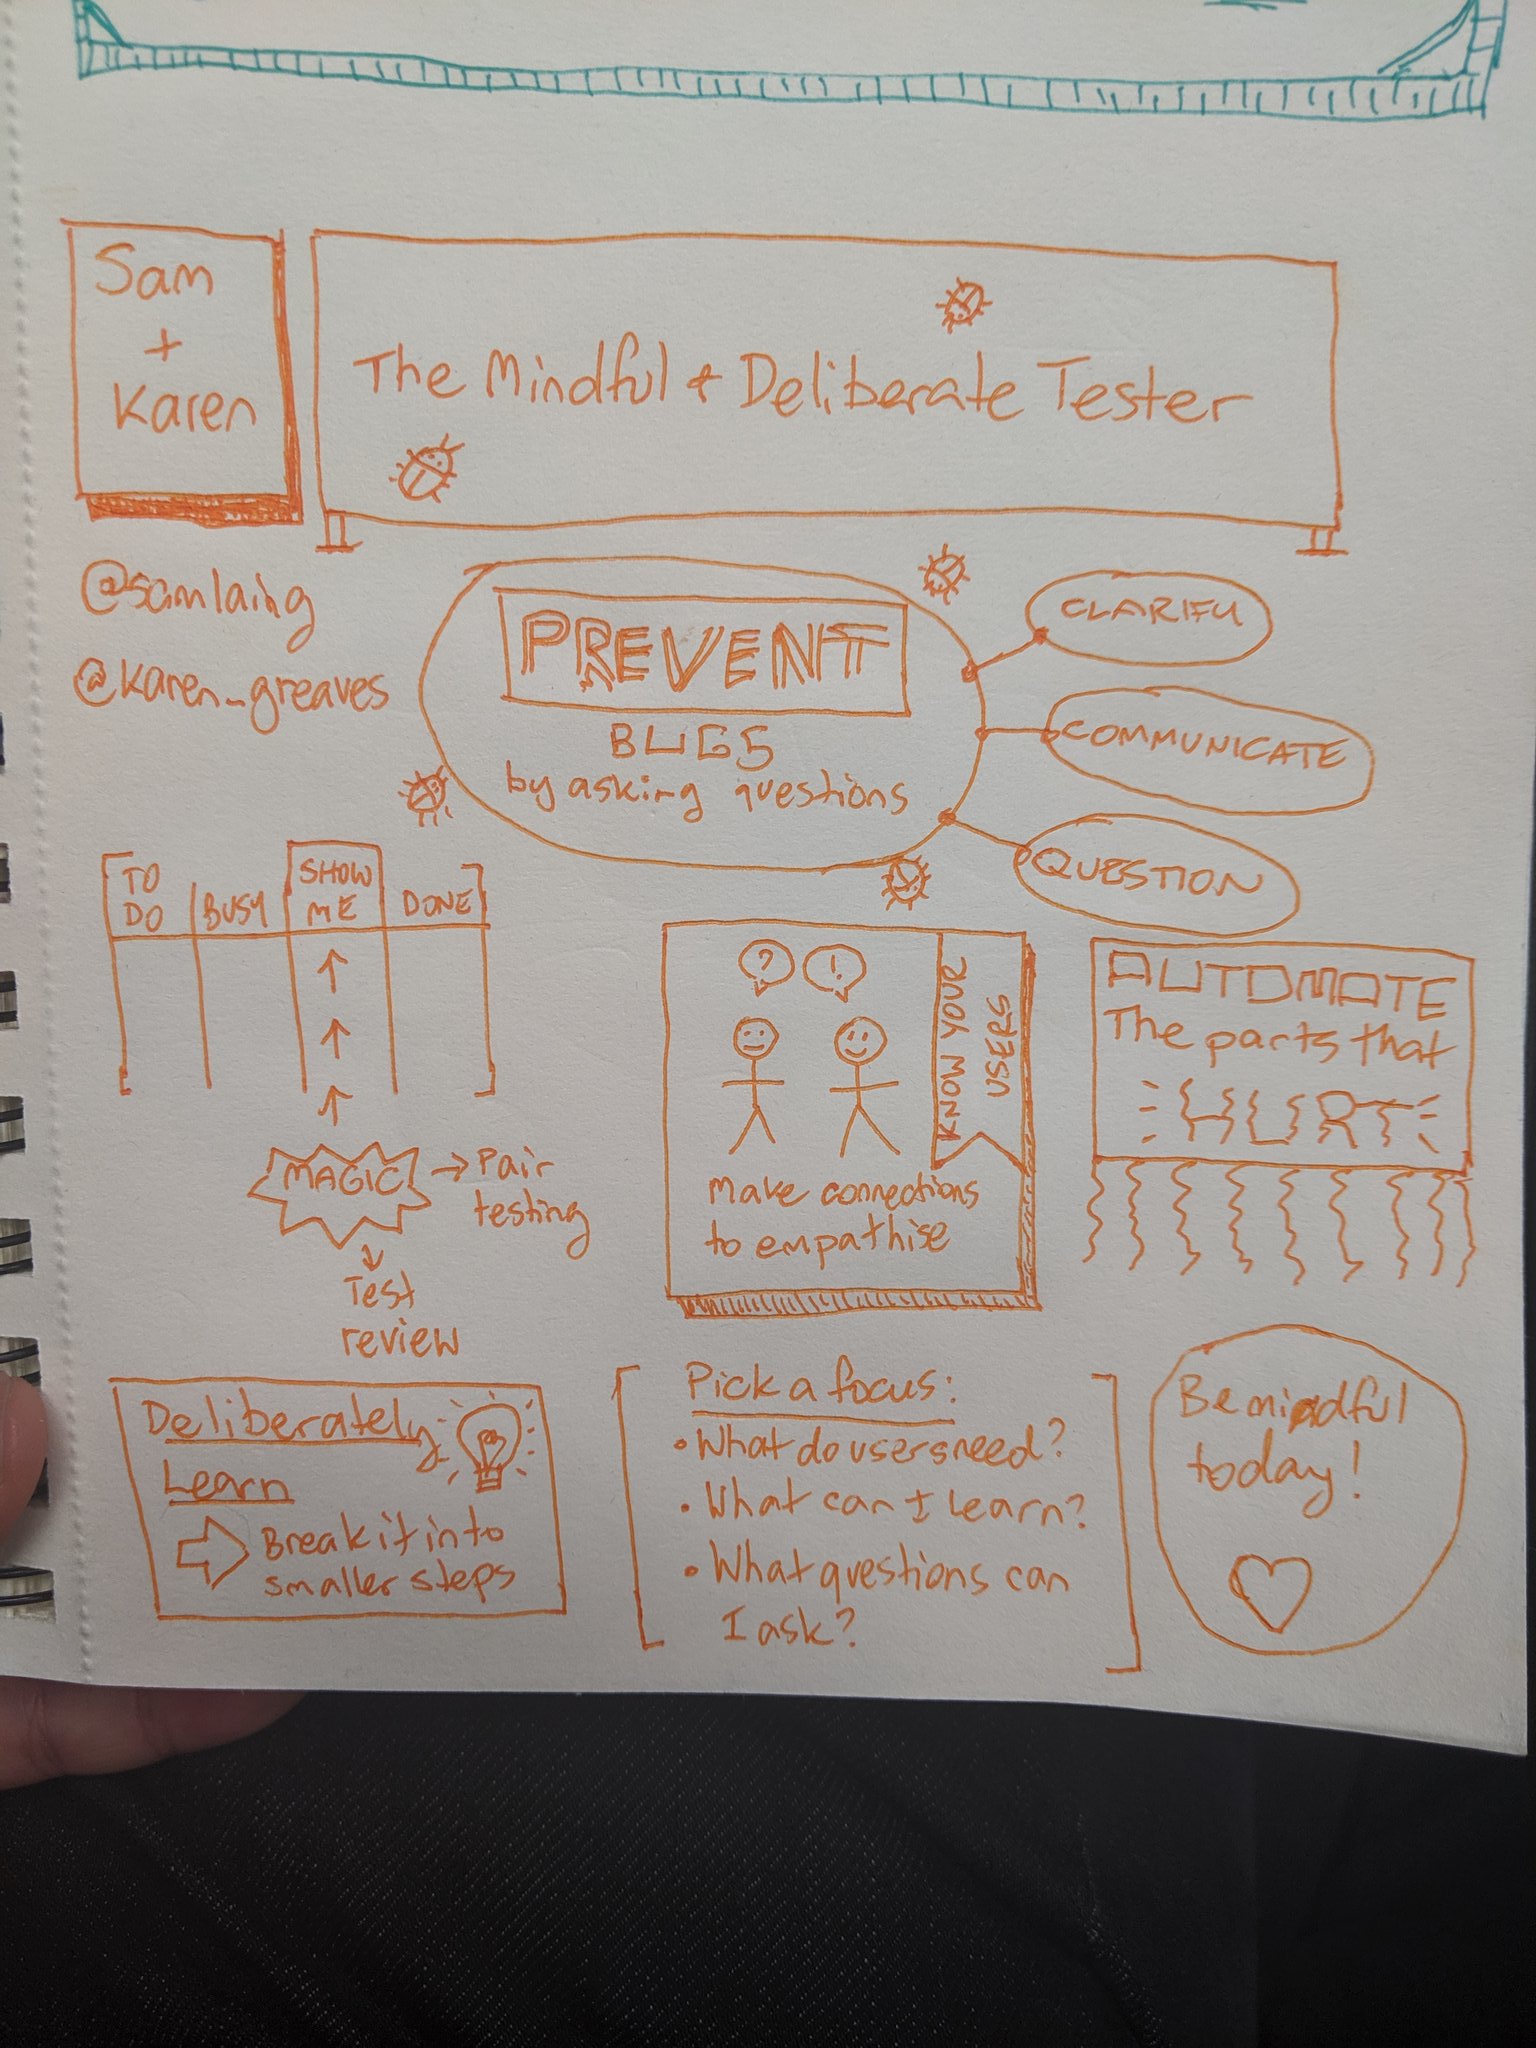 Sam
+
Karen
The Mindful + Deliberate Tester
@samlaing
@karen_greaves
PREVENT
BUGS
by asking questions
CLARIFY
COMMUNICATE
QUESTION
TO
DO
BUSY
SHOW
ME
DONE
MAGIC
→ Pair
testing
Test
review
?
!
KNOW YOUR
USERS
Make connections
to empathise
AUTOMATE
The parts that
HURT
Deliberately
Learn
Break it into
smaller steps
Pick a focus:
• What do users need?
• What can I learn?
• What questions can
I ask?
Be mindful
today!